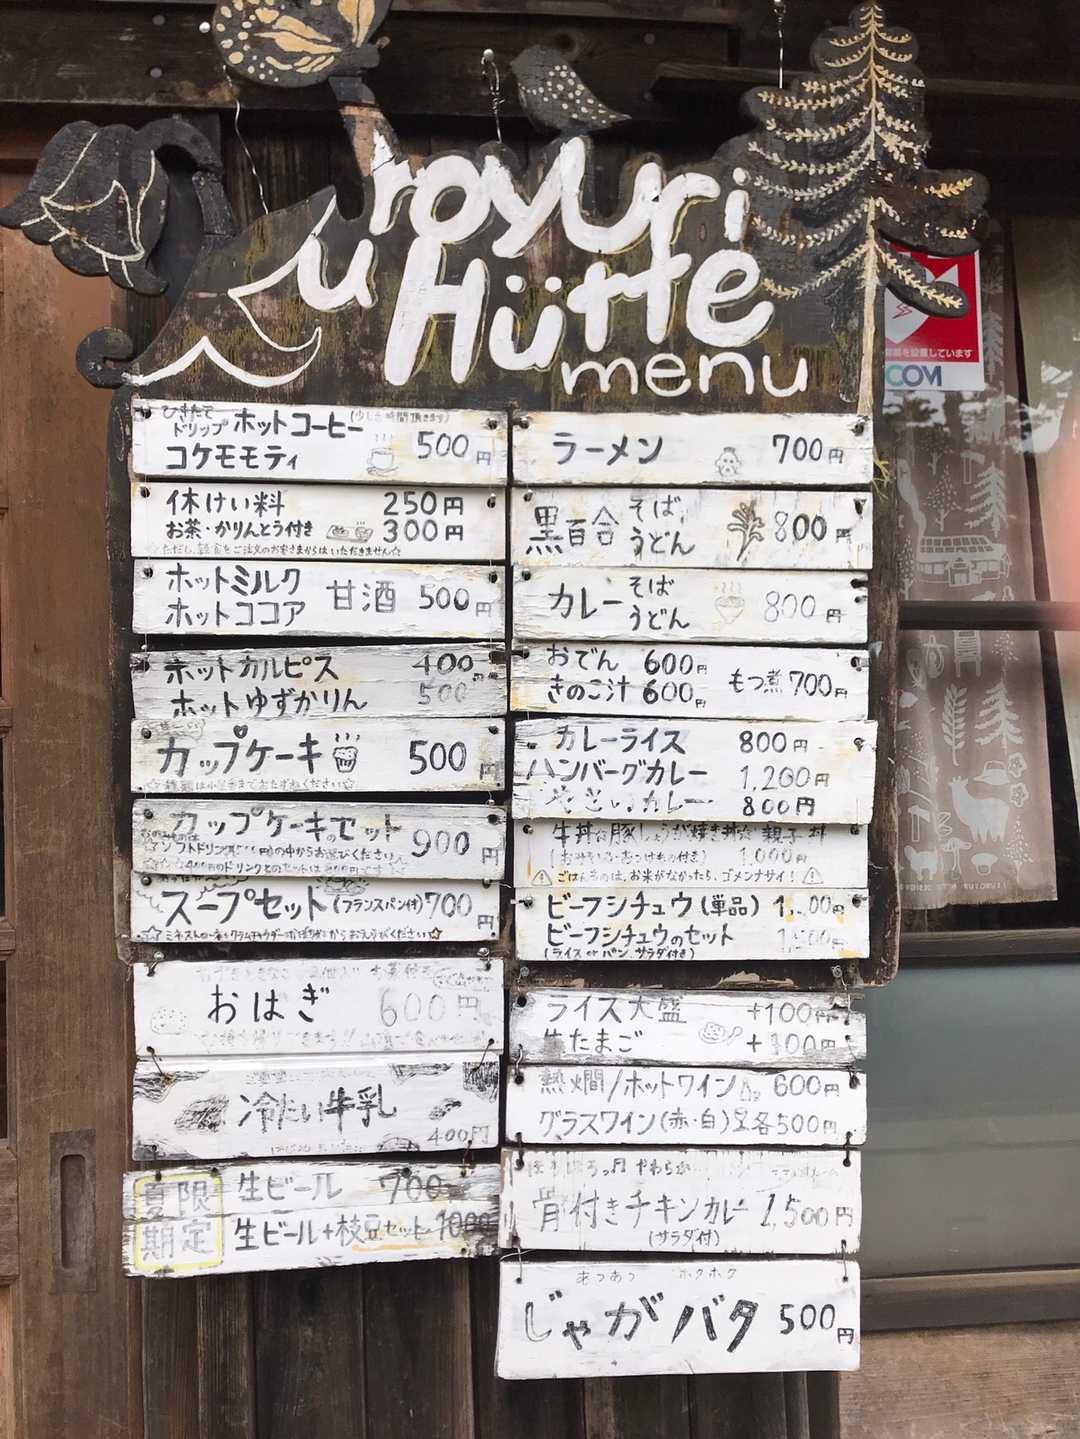 uroyuri
Hütte
menu
ひきたて
ドリップ ホットコーヒー
(少しお時間頂きます)
コケモモティ 500円
休けい料 250円
お茶・かりんとう付き 300円
☆ただし、軽食をご注文のお客さまからはいただきません☆
ホットミルク
ホットココア 甘酒 500円
ホットカルピス 400円
ホットゆずかりん 500
カップケーキ 500円
カップケーキのセット 900円
ソフトドリンク の中からお選びください
のドリンクとのセットは
スープセット (フランスパン付) 700円
からお選びください☆
おはぎ 600円
冷たい牛乳
400円
夏限
期定
生ビール 700
生ビール+枝豆セット 1000
ラーメン 700円
黒百合 そば
うどん 800円
カレー そば
うどん 800円
おでん 600円
きのこ汁 600円
もつ煮 700円
カレーライス 800円
ハンバーグカレー 1,200円
やさいカレー 800円
牛丼 豚しょうが焼き丼 親子丼
(おみそしる・おつけもの付き) 1,000円
ごはんものは、お米がなかったら、ゴメンナサイ!
ビーフシチュウ (単品) 円
ビーフシチュウのセット 1,500円
(ライス or パン、サラダ付き)
ライス大盛 +100円
生たまご +100円
熱燗/ホットワイン 600円
グラスワイン (赤・白) 各500円
骨付きチキンカレー 1,500円
(サラダ付)
あつあつ ホクホク
じゃがバタ 500円
を設置しています
COM